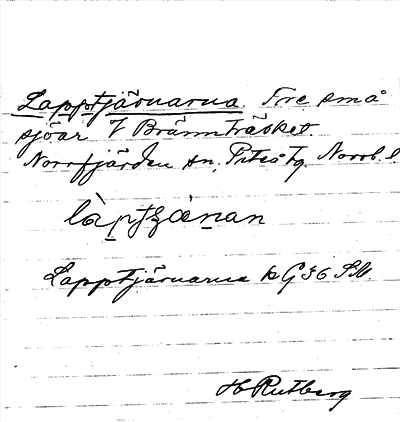 Lapptjärnarna. Tre små
sjöar V Brännträsket.
Norrfjärden sn, Piteå tg Norrb. l.
làptʒæ̀nan
Lapptjärnarna k G36 SV.
H Rutberg